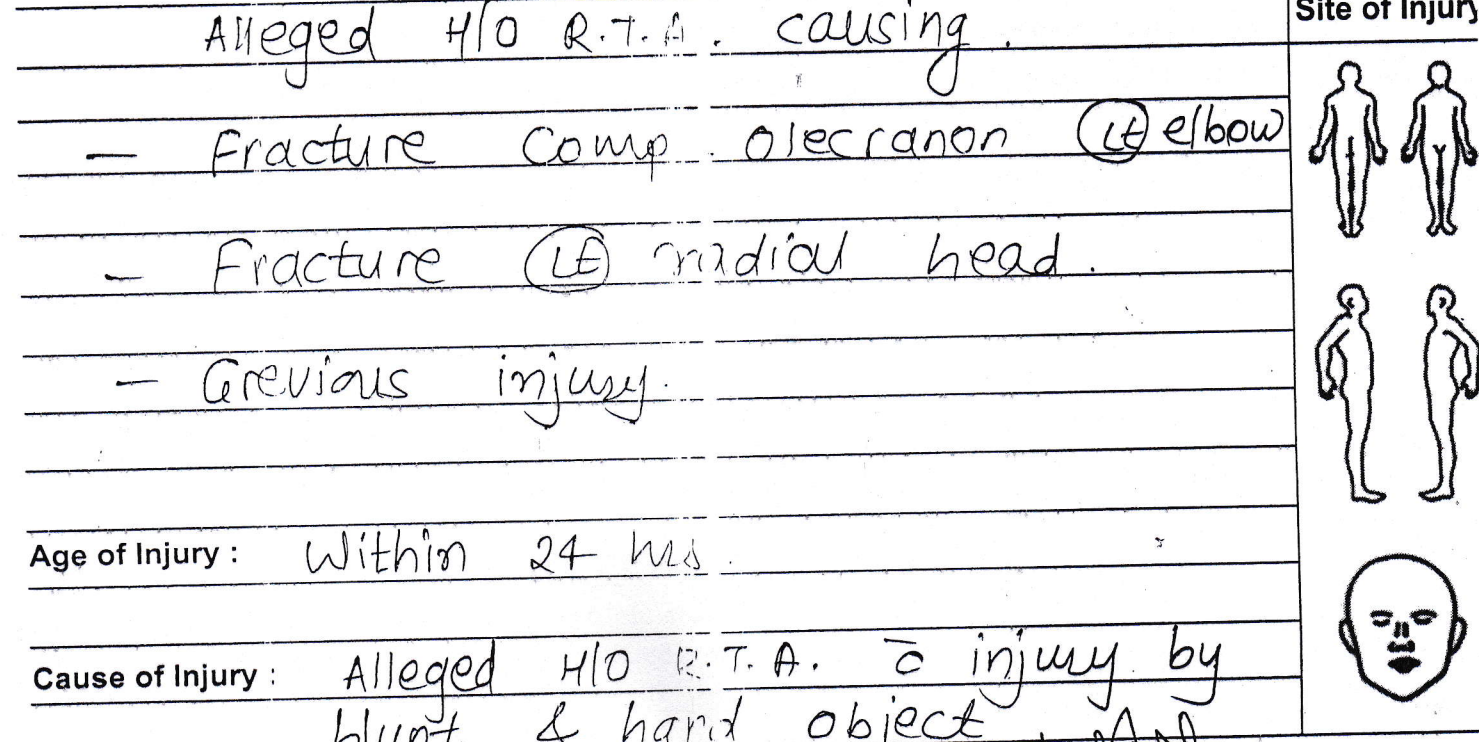 Alleged H/O R.T.A. causing.
Site of Injury
- Fracture Comp. olecranon (LE) elbow
- Fracture (LE) radial head.
- Grevious injury.
Age of Injury : Within 24 hrs.
Cause of Injury : Alleged H/O R.T.A. c̄ injury by
blunt & hard object.